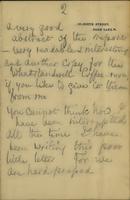 2
a very good
abstract of the report
- very readable & interesting
and another copy for the
if you like to give to them
from me
You cannot think how I
have been interrupted
all the time I have
been writing this poor
little letter for we
are hard pressed